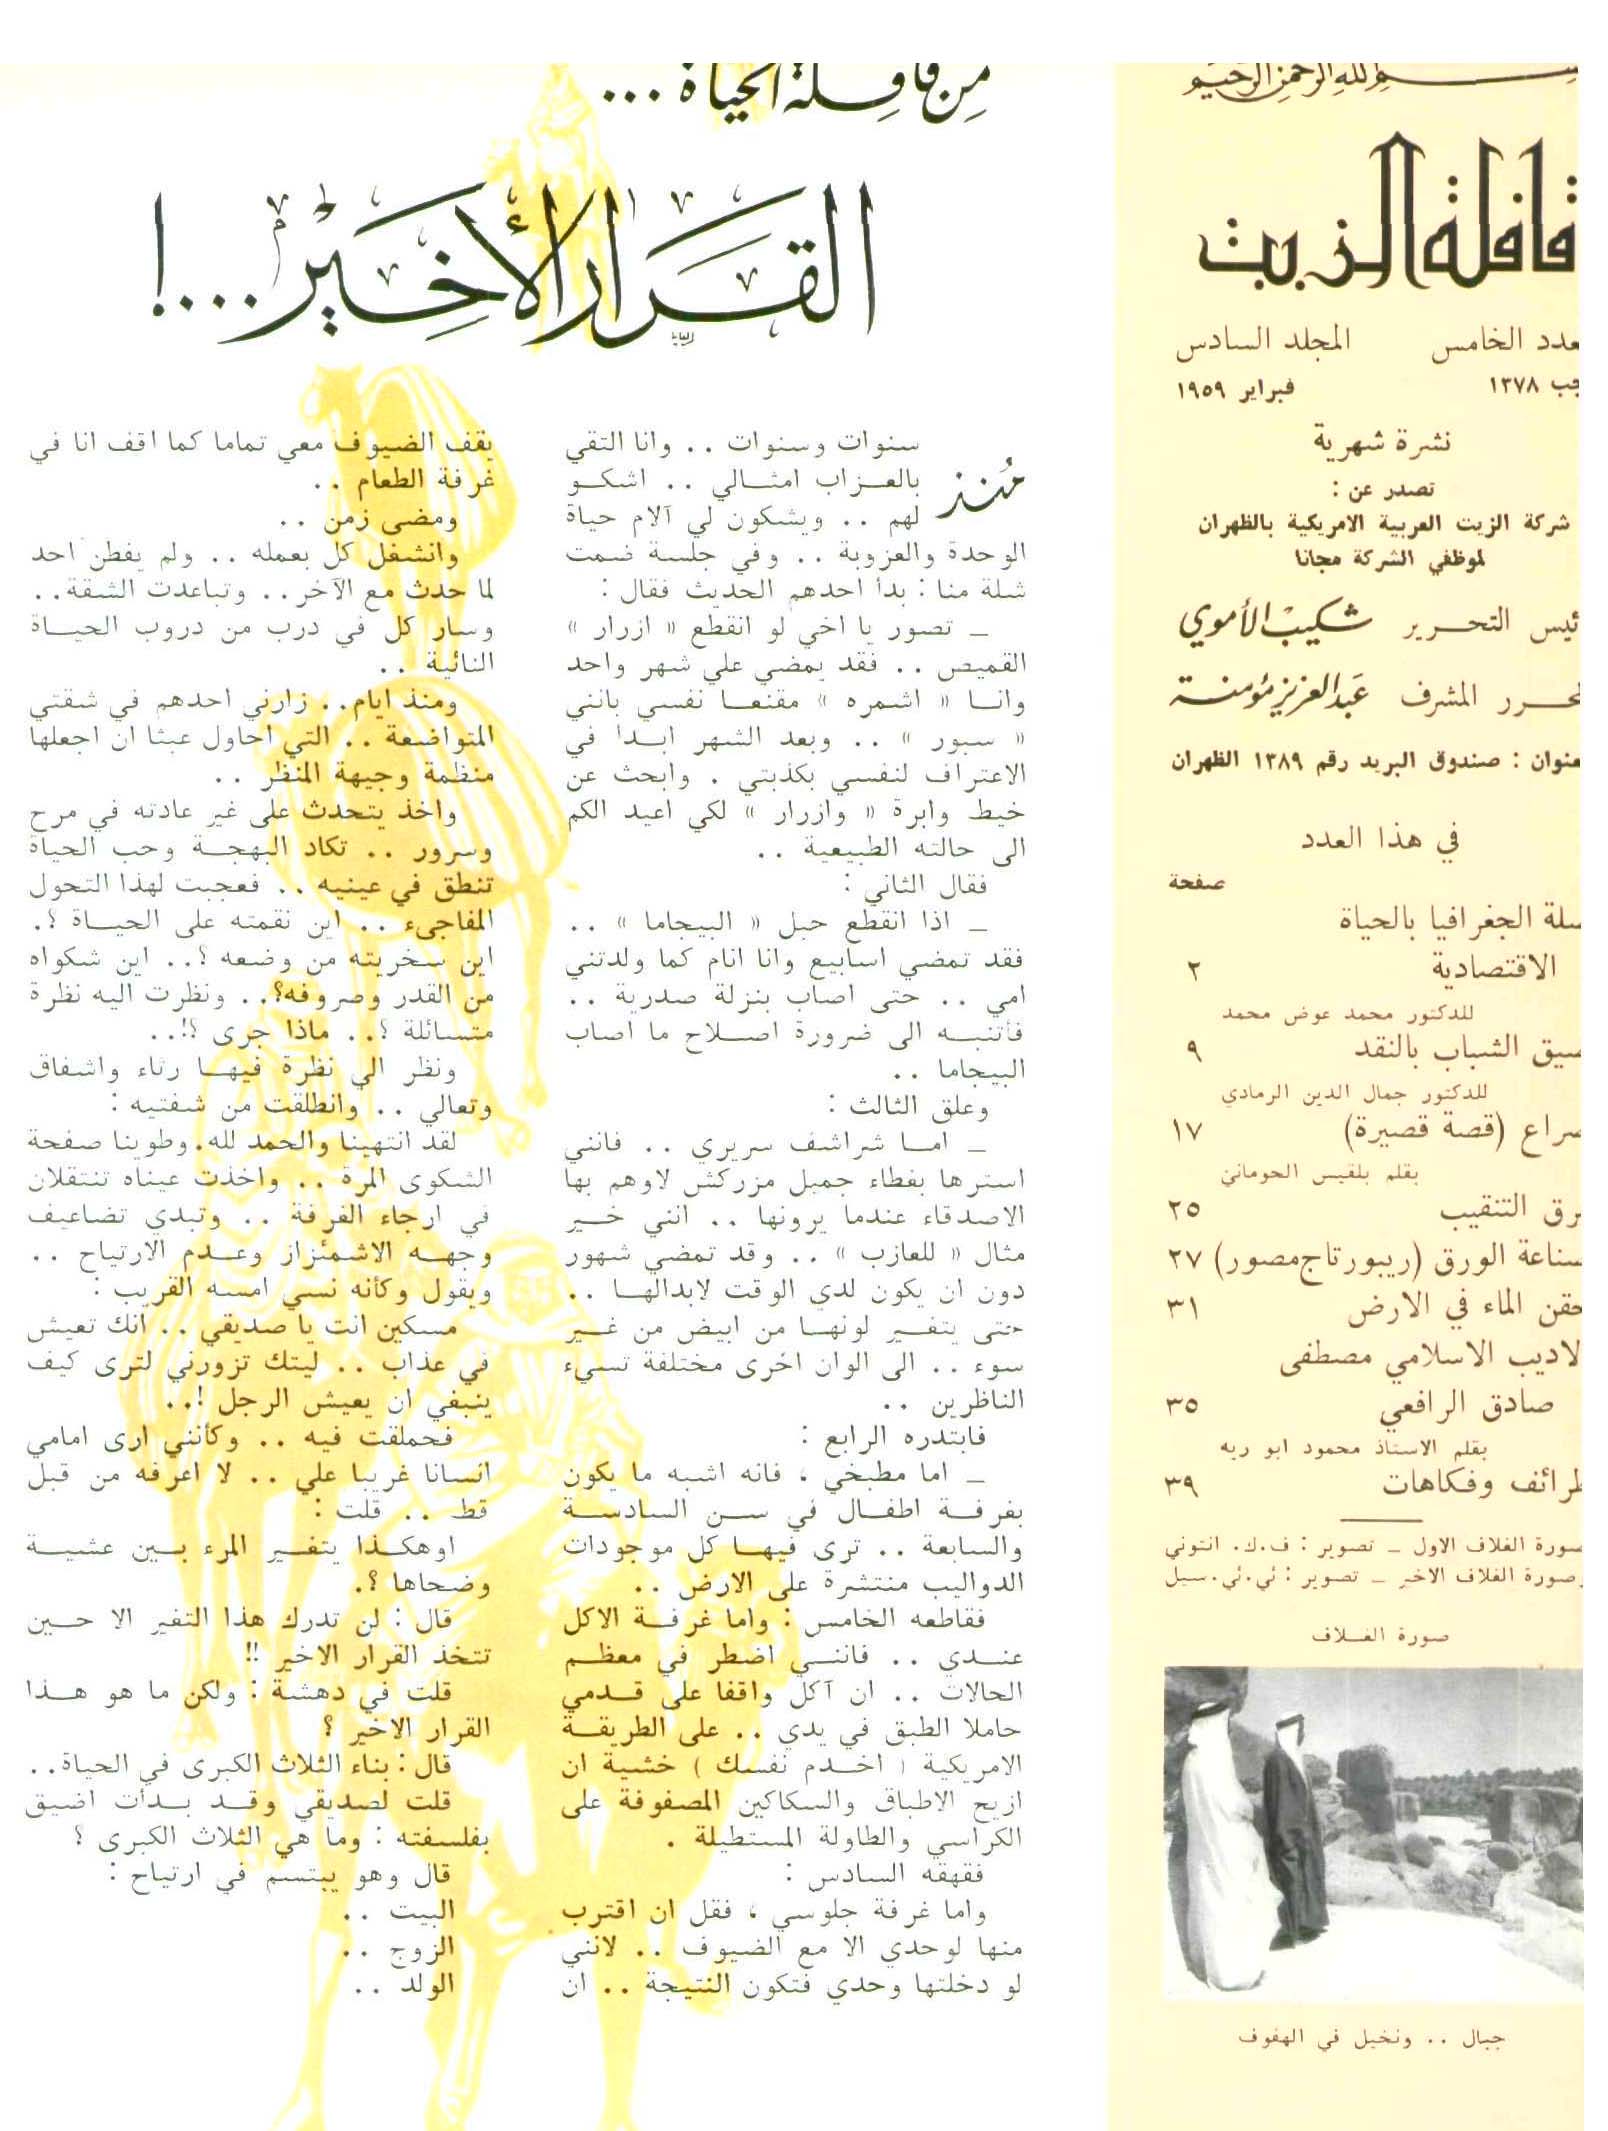 بسم الله الرحمن الرحيم
قافلة الزيت
العدد الخامس المجلد السادس
١٣٧٨ فبراير ١٩٥٩
نشرة شهرية
تصدر عن :
شركة الزيت العربية الامريكية بالظهران
لموظفي الشركة مجانا
التحـــرير شكيب الأموي
المشرف عبد العزيز مؤمنة
صندوق البريد رقم ١٣٨٩ الظهران
في هذا العدد
صفحة
الجغرافيا بالحياة
الاقتصادية ٢
للدكتور محمد عوض محمد
الشباب بالنقد ٩
للدكتور جمال الدين الرمادي
(قصة قصيرة) ١٧
بقلم بلقيس الحوماني
التنقيب ٢٥
الورق (ريبورتاج مصور) ٢٧
الماء في الارض ٣١
الاسلامي مصطفى
صادق الرافعي ٣٥
بقلم الاستاذ محمود ابو ريه
وفكاهات ٣٩
صورة الغلاف الاول ــ تصوير : ف.ك. انتوني
وصورة الغلاف الاخير ــ تصوير : ئي.ئي.سيل
صورة الغــلاف
جبال .. ونخيل في الهفوف
من قافلة الحياة ...
القرار الأخير ...!
مُنذ سنوات وسنوات .. وانا التقي
بالعــزاب امثــالي .. اشكــو
لهم .. ويشكون لي آلام حياة
الوحدة والعزوبة .. وفي جلسة ضمت
شلة منا : بدأ احدهم الحديث فقال :
ــ تصور يا اخي لو انقطع « ازرار »
القميص .. فقد يمضي علي شهر واحد
وانــا « اشمره » مقنعــا نفسي بانني
« سبور » .. وبعد الشهر ابــدأ في
الاعتراف لنفسي بكذبتي . وابحث عن
خيط وابرة « وازرار » لكي اعيد الكم
الى حالته الطبيعية ..
فقال الثاني :
ــ اذا انقطع حبل « البيجاما » ..
فقد تمضي اسابيع وانا انام كما ولدتني
امي .. حتى اصاب بنزلة صدرية ..
فأتنبــه الى ضرورة اصــلاح ما اصاب
البيجاما ..
وعلق الثالث :
ــ امــا شراشف سريري .. فانني
استرها بغطاء جميل مزركش لاوهم بها
الاصدقاء عندما يرونها .. انني خــير
مثال « للعازب » .. وقد تمضي شهور
دون ان يكون لدي الوقت لابدالهــا ..
حتى يتغــير لونهــا من ابيض من غــير
سوء .. الى الوان اخرى مختلفة تسيء
الناظرين ..
فابتدره الرابع :
ــ اما مطبخي ، فانه اشبه ما يكون
بغرفــة اطفــال في ســن السادســة
والسابعة .. ترى فيهــا كل موجودات
الدواليب منتشرة على الارض ..
فقاطعه الخامس : واما غرفــة الاكل
عنــدي .. فاننــي اضطر في معظــم
الحالات .. ان آكل واقفا على قــدمي
حاملا الطبق في يدي .. على الطريقــة
الامريكية ( اخــدم نفسك ) خشية ان
ازيح الاطباق والسكاكين المصفوفة على
الكراسي والطاولة المستطيلة .
فقهقه السادس :
واما غرفة جلوسي ، فقل ان اقترب
منها لوحدي الا مع الضيوف .. لانني
لو دخلتها وحدي فتكون النتيجة .. ان
يقف الضيوف معي تماما كما اقف انا في
غرفة الطعام ..
ومضى زمن ..
وانشغل كل بعمله .. ولم يفطن احد
لما حدث مع الآخر .. وتباعدت الشقة ..
وسار كل في درب من دروب الحيــاة
النائية ..
ومنذ ايام .. زارني احدهم في شقتي
المتواضعة .. التي احاول عبثا ان اجعلها
منظمة وجيهة المنظر ..
واخذ يتحدث على غير عادته في مرح
وسرور .. تكاد البهجــة وحب الحياة
تنطق في عينيه .. فعجبت لهذا التحول
المفاجىء .. اين نقمته على الحيــاة ؟.
اين سخريته من وضعه ؟.. اين شكواه
من القدر وصروفه؟.. ونظرت اليه نظرة
متسائلة ؟.. ماذا جرى ؟!..
ونظر الي نظرة فيهــا رثاء واشفاق
وتعالي .. وانطلقت من شفتيه :
لقد انتهينا والحمد لله. وطوينا صفحة
الشكوى المرة .. واخذت عيناه تنتقلان
في ارجاء الغرفة .. وتبدي تضاعيف
وجهــه الاشمئزاز وعــدم الارتياح ..
ويقول وكأنه نسي امسه القريب :
مسكين انت يا صديقي .. انك تعيش
في عذاب .. ليتك تزورني لترى كيف
ينبغي ان يعيش الرجل !..
فحملقت فيه .. وكأنني ارى امامي
انسانا غريبا علي .. لا اعرفه من قبل
قط .. قلت :
اوهكــذا يتغــير المرء بــين عشيــة
وضحاها ؟.
قال : لن تدرك هذا التغير الا حــين
تتخذ القرار الاخير !!
قلت في دهشة : ولكن ما هو هــذا
القرار الاخير ؟
قال : بناء الثلاث الكبرى في الحياة ..
قلت لصديقي وقــد بــدأت اضيق
بفلسفته : وما هي الثلاث الكبرى ؟
قال وهو يبتسم في ارتياح :
البيت ..
الزوج ..
الولد ..